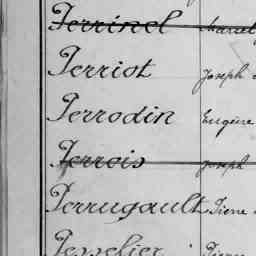 Perrinel Marcel
Perriot Joseph
Perrodin Eugène
Perrois Joseph
Perrugault Pierre
Pesselier Pierre